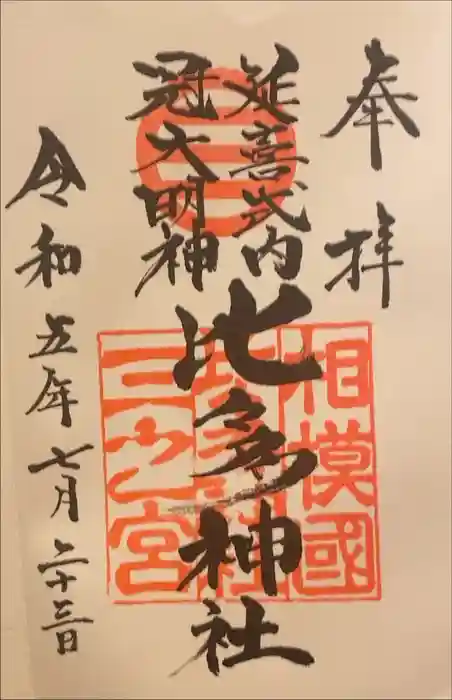 奉拝
延喜式内
冠大明神
比多神社
令和五年七月二十三日
相模國
比多神社
三之宮